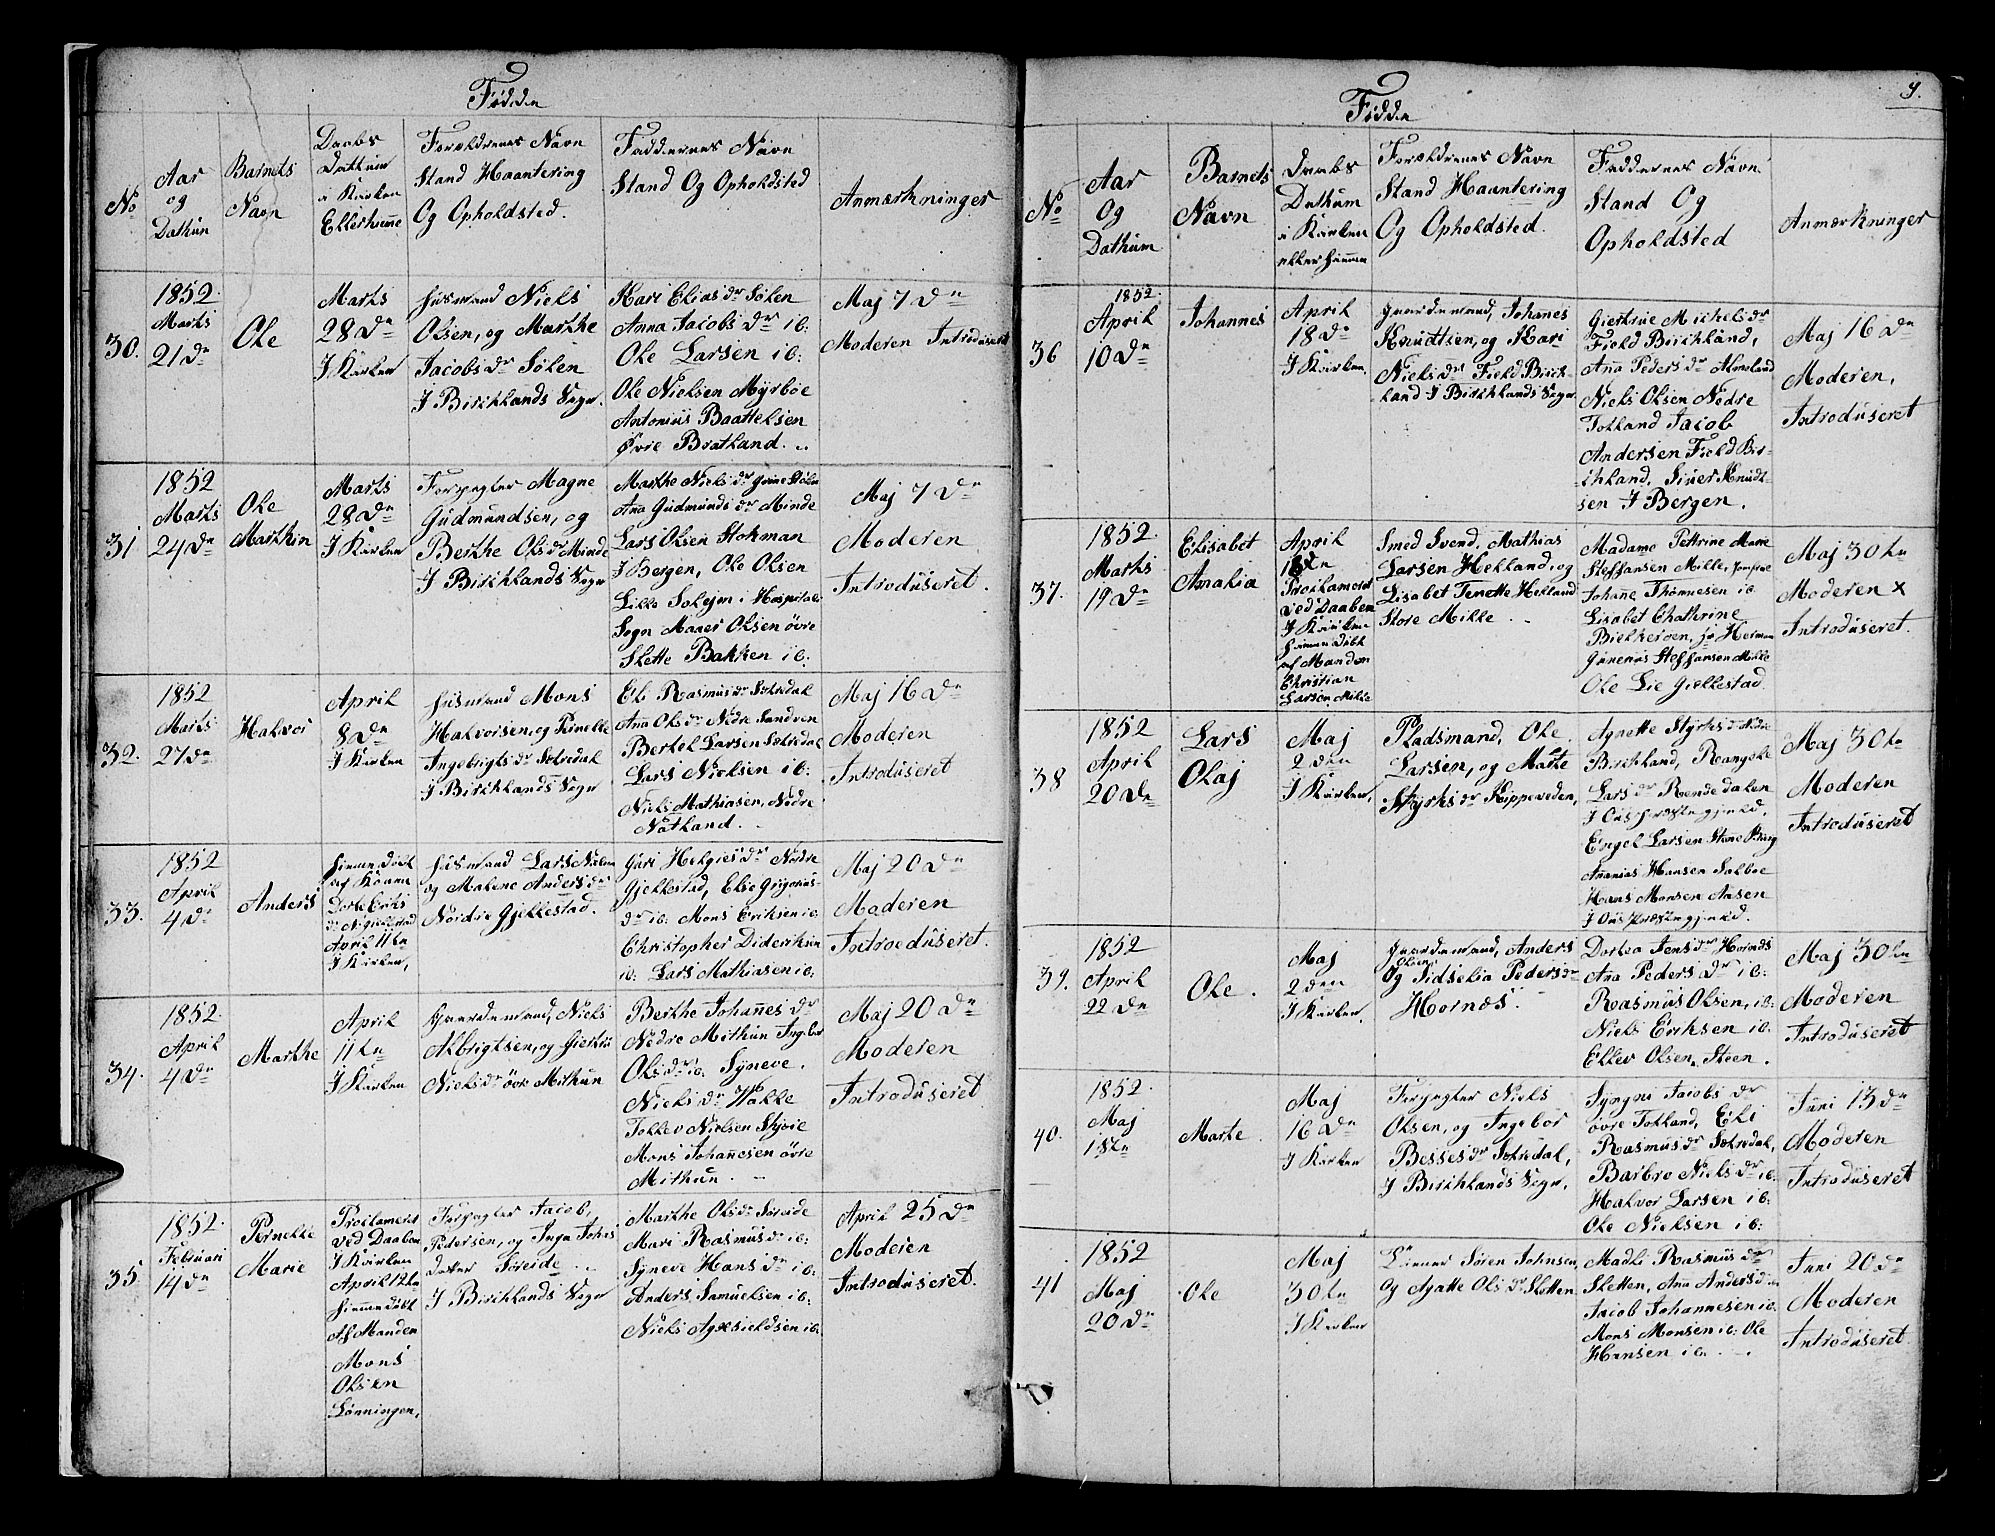 Fødde
No
Aar
og
Dathun
Barnets
Navn
Daabs
Dathum
i Kirken
Eller hiemme
Forældrenes Navn
Stand Haantering
Og Opholdsted.
Faddernes Navn
Stand Og Opholdsted
Anmærkninger
30.
1852.
Marts
21 dn
Ole
Marts
28 Dn
I Kirken
Husmand Niels
Olsen, og Marthe
Jacobs Dr Sølen
I Birchlands Sogn.
Kari Elias dr Sølen
Anna Jacobs Dr ib:
Ole Larsen ib:
Ole Nielsen Myrboe
Antonius Baattelsen
Øvre Bratland.
Maj 7 Dn
Moderen Introduseret
31
1852
Marts
24 Dn
Ole
Marthin
Marts
28 Dn
I Kirken
Forpagter Magne
Gudmundsen, og
Berthe Ols dr Minde
I Birchlands Sogn
Marthe Niels dr
Ana Gudmunds dr Minde
Lars Olsen Stokman
I Bergen, Ole Olsen
Lille Solejm i Hospitals
Sogn Maaer Olsen øvre
Slette Bakken ib:
Maj 7 Dn
Moderen
Introduseret.
32.
1852
Marts
27 dn
Halvor
April
8 Dn
I Kirken
Husmand Mons
Halvorsen, og Pirnelle
Ingebrigts dr Sætredal
I Birchlands Sogn
Eli Rasmus dr Sætredal
Ana Ols dr Nedre Sandven
Bertel Larsen Sætredal
Lars Nielsen ib:
Niels Mathiasen, Nedre
Natland.
Maj 16 Dn
Moderen
Introduseret
33.
1852
April
4 Dn
Anders
Hiemme Døbt
af Konen
Dorte Eriks
Dr N. Gjellestad
April 11te
I Kirken,
Husmand Lars Nielsen
og Malene Anders dr
Nordre Gjellestad.
Guri Helgies dr Nordre
Gjellestad, Elie Grigorius-
dr ib: Mons Eriksen ib:
Christopher Diderichsen
ib: Lars Mathiasen ib:
Maj 20 Dn
Moderen
Introeduseret.
34.
1852.
April
4 Dn
Marthe
April
11te
I Kirken
Gaardemand, Niels
Albrigtsen, og Giertrue
Niels dr øvre Mithun
Berthe Johanes Dr
Nedre Mithun Ingebor
Ols dr ib: Syneve
Niels Dr Wolle
Tollev Nielsen
Mons Johanesen øvre
Mithun.
Maj 20 Dn
Moderen
Introduseret.
35.
1852.
Februari
14 dn
Pirnelle
Marie
Proclameret
ved Daaben
I Kirken
April 12te
Hiemme Døbt
Af Manden
Mons
Olsen
Lønningen,
Forpagter Jacob,
Pedersen, og Inga Johns
datter Søreide
I Birchlands Sogn
Marthe Ols dr Søreide
Mari Rasmus dr ib:
Syneve Hans dr ib:
Anders Samuelsen ib:
Niels Agxesieldsen ib:
April 25 Dn
Moderen
Introduseret.
9.
Fødde
No
Aar
Og
Dathum
Barnets
Navn
Daabs
Dathum
i Kirken
eller Hiemme
Forældrenes Navn
Stand Haantering
Og Opholdsted.
Faddernes Navn
Stand Og
Opholdsted
Anmærkninger
36
1852.
April
10 Dn
Johannes
April
18 Dn
I Kirken.
Gaardemand, Johanes
Knudtsen, og Kari
Niels Dr Field Birch-
land I Birchlands Sogn
Giertrue Michels dr
Field Birchland,
Ana Peders dr Almeland
Niels Olsen Nedre
Totland Jacob
Andersen Field Bir-
chland, Siver Knudt-
sen I Bergen.
Maj 16 Dn
Moderen,
Introduseret
37.
1852.
Marts
19 Dn
Elisabet
Amalia
April
18 Dn
Proclameret
ved Daaben
I Kirken
Hiemme Døbt
af Manden
Christian
Larsen Milde
Smed Svend, Mathias
Larsen Hekland, og
Lisabet Tenette Hekland
Store Milde.
Madame Pettrine Marie
Steffansen Milde, jomfrue
Johane Thomesen ib
Lisabet Chathrine
Bielkeroen, jo Herman
Steffansen Milde
Ole Lie Gjellestad
Maj 30te
Moderen x
Introduseret.
38
1852
April
20 Dn
Lars
Olaj
Maj
2 den
I Kirken,
Pladsmand, Ole
Larsen, og Marte
Styrks dr Kippeveden,
Agnette Styrks dr Nedre
Birchland, Reangele
Lars dr Rendedalen
I Ous Præstegjæld.
Engel Larsen Store
Ananias Hansen Salboe
Hans Monsen Aasen
I Ous Præstegjeld.
Maj 30te
Moderen
Introduseret
39.
1852
April
22 Dn
Ole.
Maj
2 den
I Kirken,
Gaardemand, Anders
Olsen
Og Sidselia Peders dr
Hornæs.
Dortea Jens dr Hornæs
Ana Peders Dr ib:
Rasmus Olsen, ib:
Niels Eriksen ib:
Ellev Olsen, Steen.
Maj 30te
Moderen
Introduseret
40.
1852.
Maj
1ste
Marte.
Maj
16 Dn
I Kirken
Forpagter Niels
Olsen, og Ingebor
Besses dr Sætredal,
I Birchlands Sogn,
Syngni Jacobs dr
øvre Totland, Eli
Rasmus dr Sætredal,
Barbro Niels dr ib:
Halvor Larsen ib:
Ole Nielsen ib:
Juni 13 Dn
Moderen
Introduseret
41
1852
Maj
20 Dn
Ole
Maj
30te
I Kirken
Søren Johnsen
Og Agatte Ols dr Sletten
Madli Rasmus dr
Sletten, Ana Anders dr
Jacob Johannesen ib:
Mons Monsen ib: Ole
Hansen ib.
Juni 20 Dn
Moderen
Introduseret.